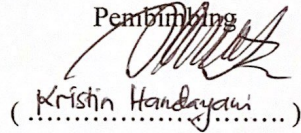 Pembimbing
( Kristin Handayani )